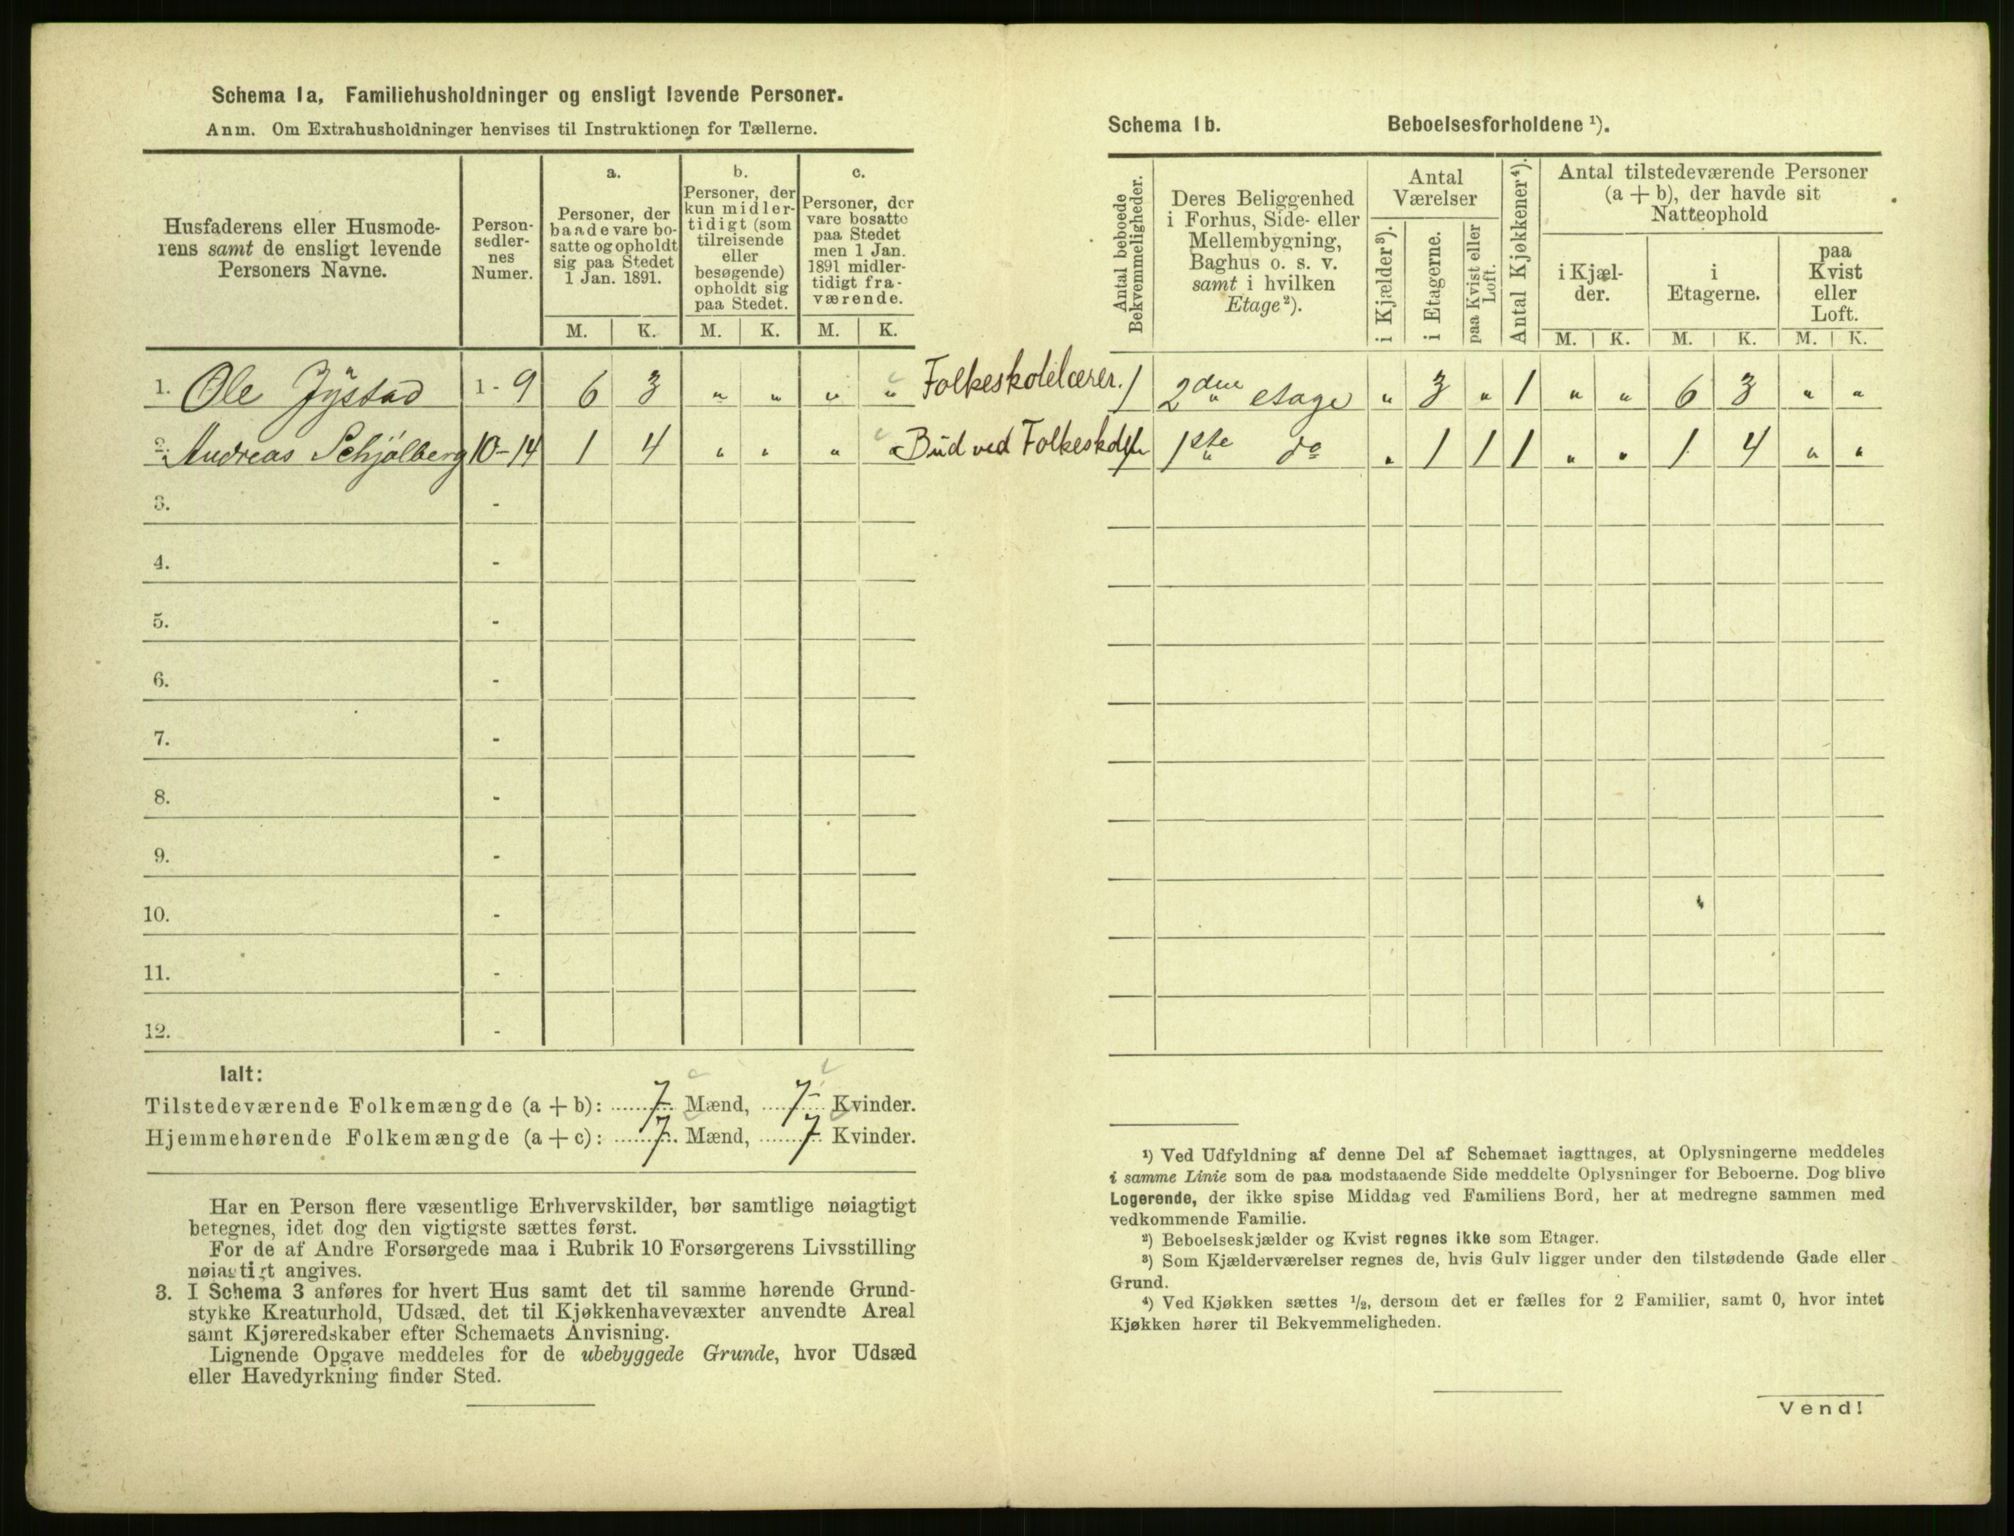 Schema 1a, Familiehusholdninger og ensligt levende Personer.
Anm. Om Extrahusholdninger henvises til Instruktionen for Tællerne.
Husfaderens eller Husmode-
rens samt de ensligt levende
Personers Navne.
Person-
sedler-
nes
Numer.
a.
Personer, der
baade vare bo-
satte og opholdt
sig paa Stedet
1 Jan. 1891.
b.
Personer, der
kun midler-
tidigt (som
tilreisende
eller
besøgende)
opholdt sig
paa Stedet.
c.
Personer, der
vare bosatte
paa Stedet
men 1 Jan.
1891 midler-
tidigt fra-
værende.
M. K. M. K. M. K.
1. Ole Jystad 1 - 9 6 3 " " " "
2. Andreas Schjølberg 10-14 1 4 " " " "
3. -
4. -
5. -
6. -
7. -
8. -
9. -
10. -
11. -
12. -
Ialt:
Tilstedeværende Folkemængde (a + b): 7 Mænd, 7 Kvinder.
Hjemmehørende Folkemængde (a + c): 7 Mænd, 7 Kvinder.
Har en Person flere væsentlige Erhvervskilder, bør samtlige nøiagtigt
betegnes, idet dog den vigtigste sættes først.
For de af Andre Forsørgede maa i Rubrik 10 Forsørgerens Livsstilling
nøiagtigt angives.
3. I Schema 3 anføres for hvert Hus samt det til samme hørende Grund-
stykke Kreaturhold, Udsæd, det til Kjøkkenhavevæxter anvendte Areal
samt Kjøreredskaber efter Schemaets Anvisning.
Lignende Opgave meddeles for de ubebyggede Grunde, hvor Udsæd
eller Havedyrkning finder Sted.
Schema 1b. Beboelsesforholdene ¹).
Antal beboede
Bekvemmeligheder.
Deres Beliggenhed
i Forhus, Side- eller
Mellembygning,
Baghus o. s. v.
samt i hvilken
Etage²).
Antal
Værelser
i Kjælder³).
i Etagerne.
paa Kvist eller
Loft.
Antal Kjøkkener⁴).
Antal tilstedeværende Personer
(a + b), der havde sit
Natteophold
i Kjæl-
der.
i
Etagerne.
paa
Kvist
eller
Loft.
M. K. M. K. M. K.
Folkeskolelærer. 1 2den etage " 3 " 1 " " 6 3 " "
Bud ved Folkeskolen 1 1ste do " 1 1 1 " " 1 4 " "
¹) Ved Udfyldning af denne Del af Schemaet iagttages, at Oplysningerne meddeles
i samme Linie som de paa modstaaende Side meddelte Oplysninger for Beboerne. Dog blive
Logerende, der ikke spise Middag ved Familiens Bord, her at medregne sammen med
vedkommende Familie.
²) Beboelseskjælder og Kvist regnes ikke som Etager.
³) Som Kjælderværelser regnes de, hvis Gulv ligger under den tilstødende Gade eller
Grund.
⁴) Ved Kjøkken sættes ½, dersom det er fælles for 2 Familier, samt 0, hvor intet
Kjøkken hører til Bekvemmeligheden.
Vend!